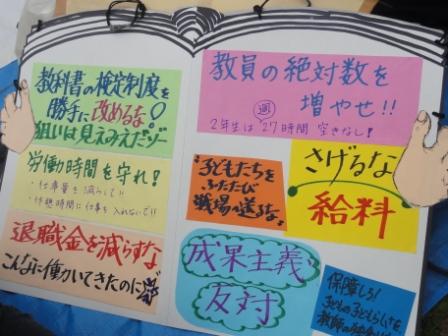 教科書の検定制度を
勝手に改めるな!
狙いは見えみえだゾー
労働時間を守れ!
・仕事量を減らして!!
・休憩時間に仕事を入れないで!!
退職金を減らすな
こんなに働いてきたのにゾ
教員の絶対数を
増やせ!!
2年生は週27時間空きなし!
子どもたちを
ふたたび
戦場へ送るな。
さげるな
給料
成果主義
反対
保障しろ!
子どもの子どもらしさを
教師の